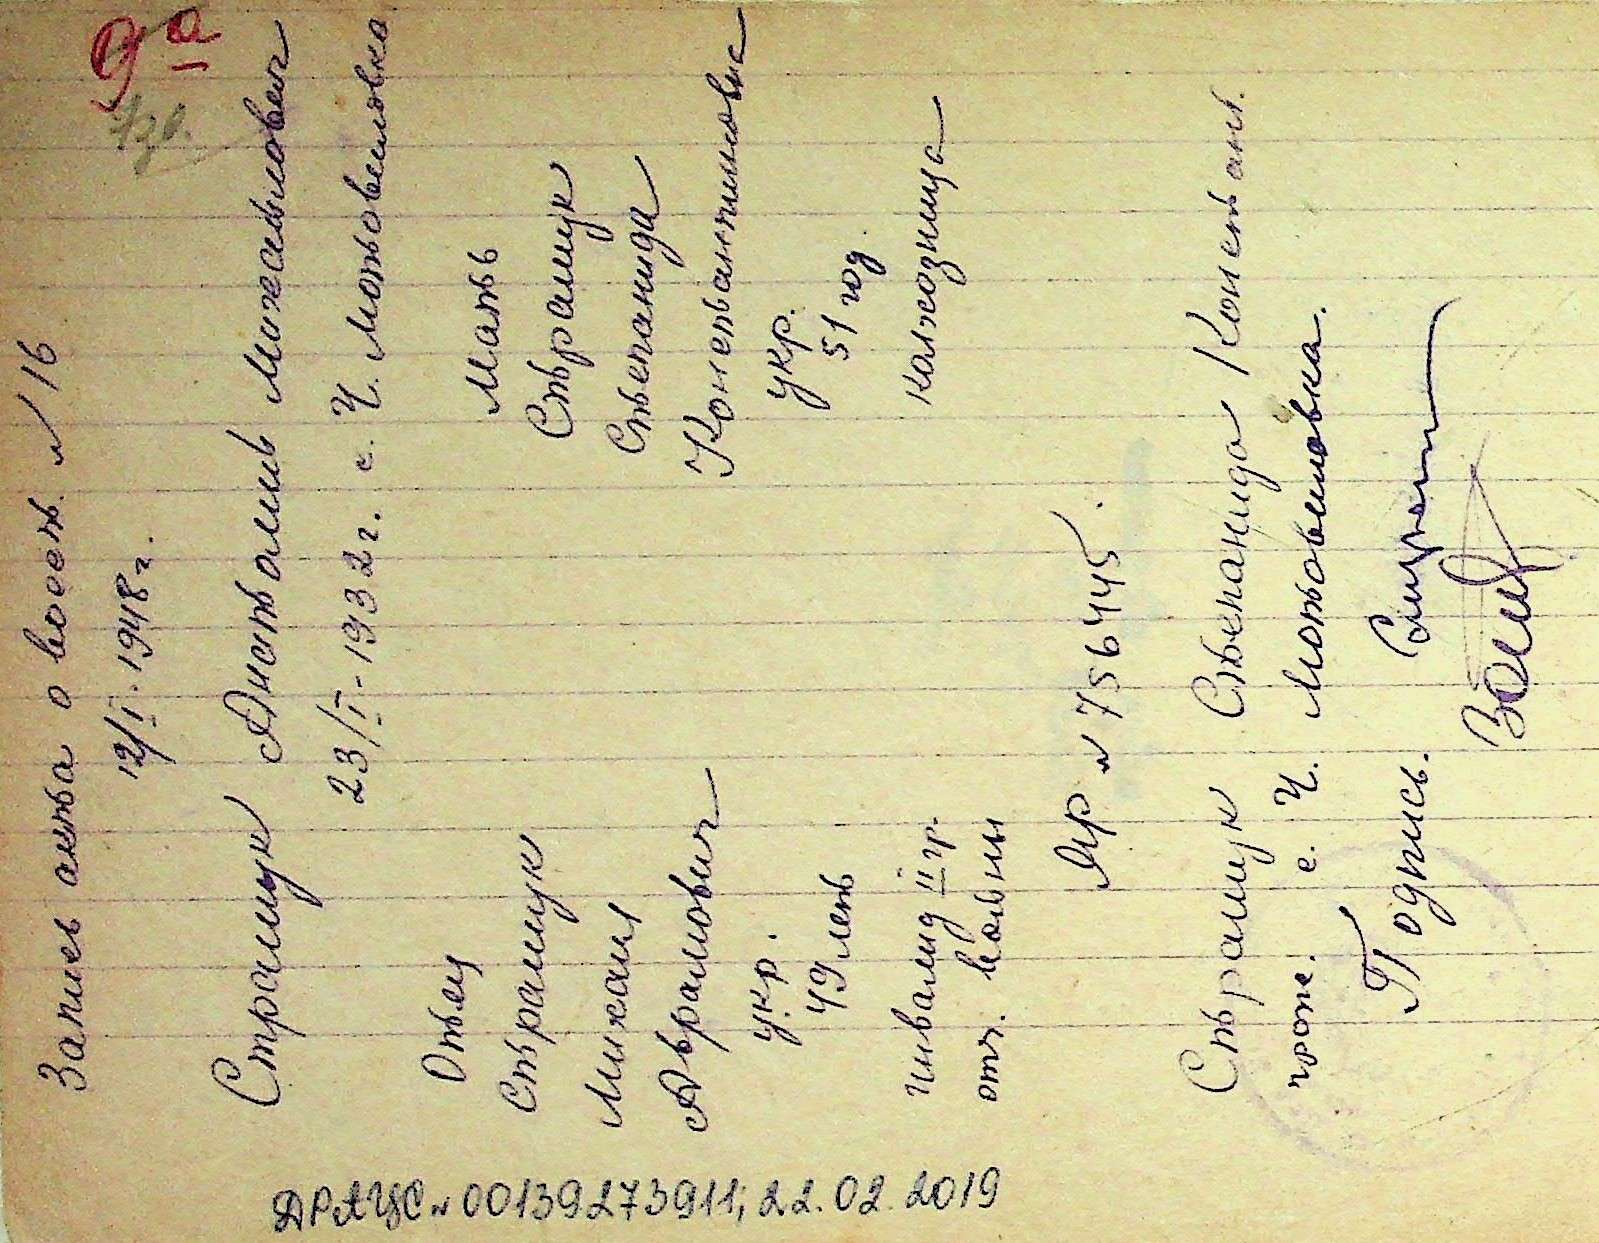 9а
Запись акта о восст. №16
12/I-1948 г.
Страшук Анатолий Михайлович
23/I-1932 г. с. Ч. Мотовиловка
Отец
Страшук
Михаил
Абрамович
укр.
49 лет
инвалид II гр.
отч. войны
Мать
Страшук
Степанида
Константиновна
укр.
51 год
колхозница
ЯР №756445.
Страшук Степанида Констант.
прож. с. Ч. Мотовиловка.
Подпись.
ДРАЦС №00139273911; 22.02.2019